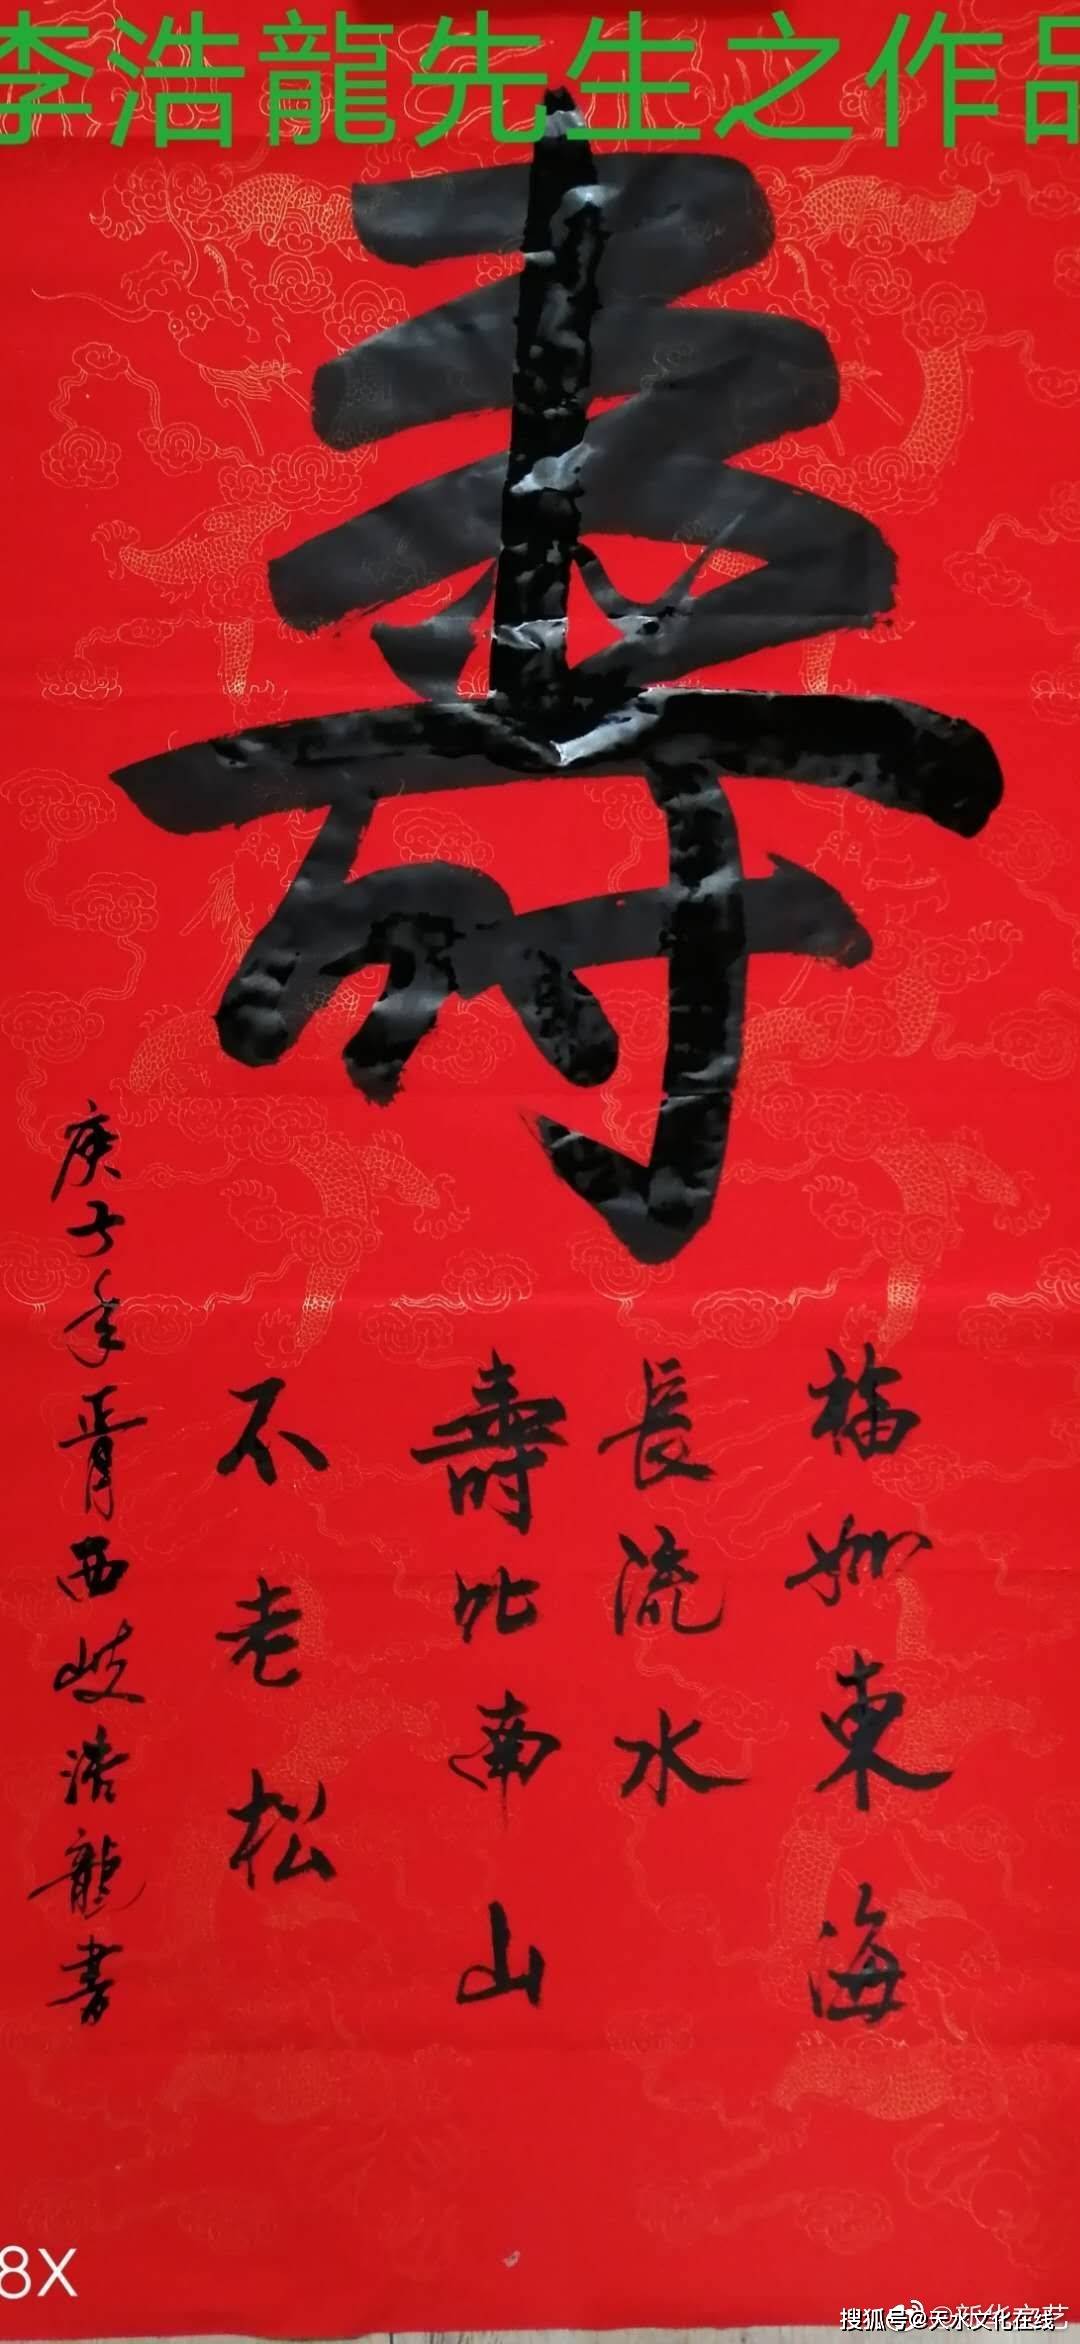 李浩龍先生之作品
壽
福如東海
長流水
壽比南山
不老松
庚子年
西岐浩龍書
8X
搜狐号@天水文化在线